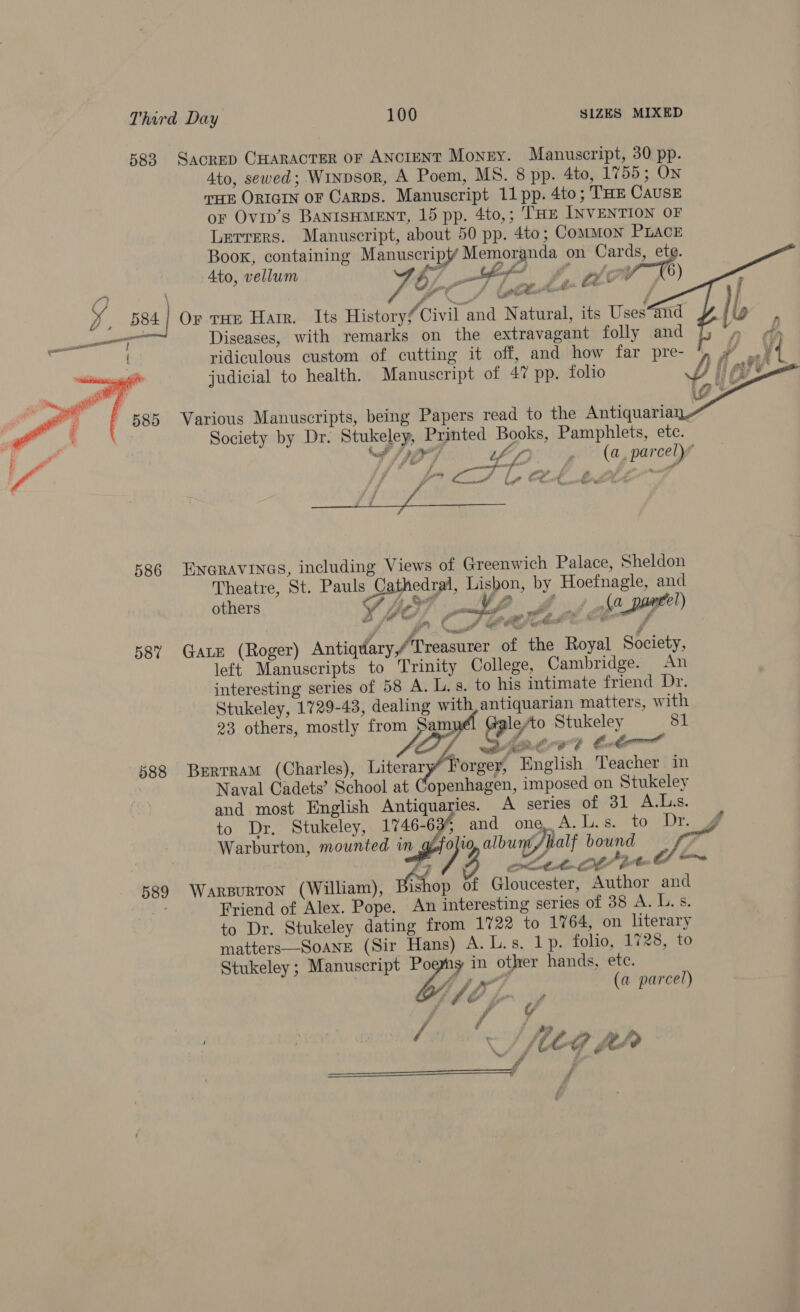 Third Day 100 SIZES MIXED
583 SACRED CHARACTER OF ANCIENT MONEY. Manuscript, 30 pp.
4to, sewed; WINDSOR, A Poem, MS. 8 pp. 4to, 1755; ON
THE ORIGIN OF CARDS. Manuscript 11 pp. 4to; THE CAUSE
OF OVID'S BANISHMENT, 15 pp. 4to,; THE INVENTION OF
LETTERS. Manuscript, about 50 pp. 4to; COMMON PLACE
BOOK, containing Manuscript Memoranda on Cards, etc.
4to, vellum (6)
584 OF THE HAIR. Its History Civil and Natural, its Uses and
Diseases, with remarks on the extravagant folly and
ridiculous custom of cutting it off, and how far pre-
judicial to health. Manuscript of 47 pp. folio
585 Various Manuscripts, being Papers read to the Antiquarian
Society by Dr. Stukeley, Printed Books, Pamphlets, etc.
(a parcel)
586 ENGRAVINGS, including Views of Greenwich Palace, Sheldon
Theatre, St. Pauls Cathedral, Lisbon, by Hoefnagle, and
others (a parcel)
587 GALE (Roger) Antiquary, Treasurer of the Royal Society,
left Manuscripts to Trinity College, Cambridge. An
interesting series of 58 A. L. s. to his intimate friend Dr.
Stukeley, 1729-43, dealing with antiquarian matters, with
23 others, mostly from Samuel Gale to Stukeley 81
588 BERTRAM (Charles), Literary Forger, English Teacher in
Naval Cadets' School at Copenhagen, imposed on Stukeley
and most English Antiquaries. A series of 31 A.L.s.
to Dr. Stukeley, 1746-63; and one A. L. s. to Dr.
Warburton, mounted in folio album, half bound
589 WARBURTON (William), Bishop of Gloucester, Author and
Friend of Alex. Pope. An interesting series of 38 A. L. s.
to Dr. Stukeley dating from 1722 to 1764, on literary
matters—SOANE (Sir Hans) A. L. s. 1 p. folio, 1728, to
Stukeley; Manuscript Poems in other hands, etc.
(a parcel)